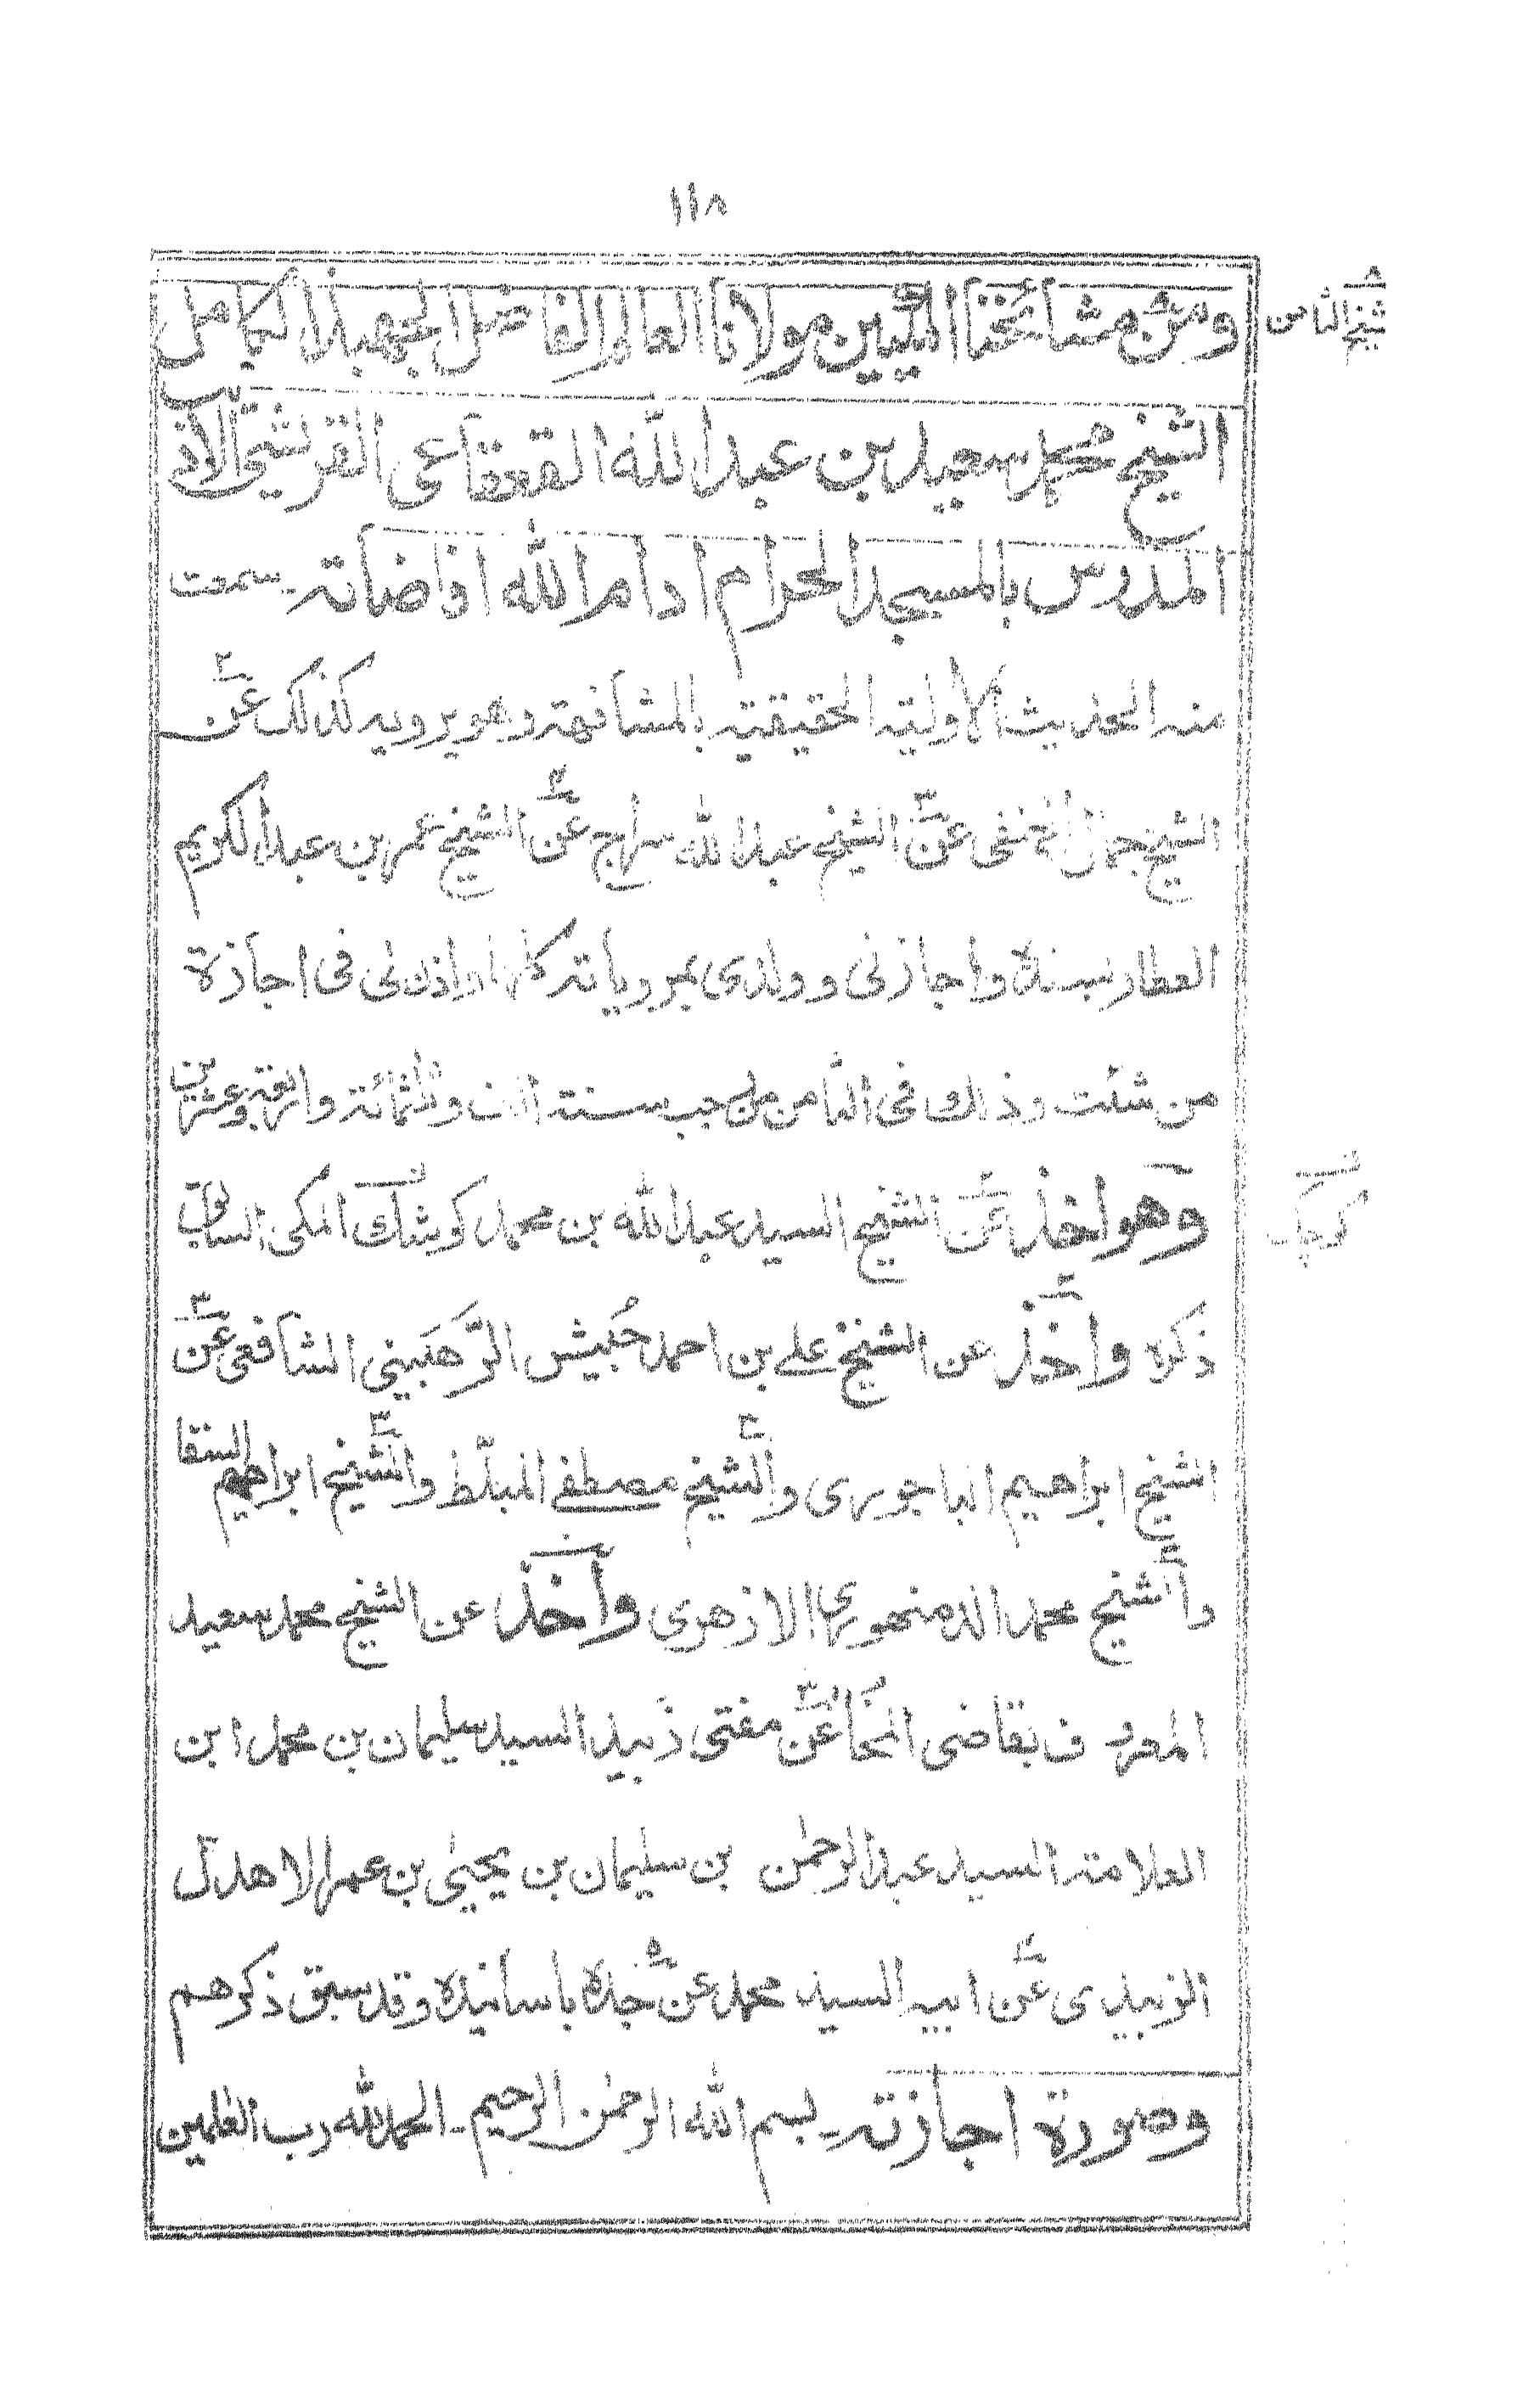 ١١٨
ومن مشائخنا المكيين مولانا العالم الفاضل الجهبذ الكامل
شيخ الثامن
الشيخ محمد سعيد بن عبد الله القعقاعى القرشى
المدرس بالمسجد الحرام ادام الله افاضاته۔ سمعت
منه الحديث الاولية الحقيقية بالمشافهة وهو يرويه كذلك عن
الشيخ جمال الحنفى عن الشيخ عبد الله سراج عن الشيخ عمر بن عبد الكريم
العطار بسنده واجازنى وولدى بمروياته كلها واذن لى فى اجازة
من شئت وذلك فى الثامن من رجب سنة الف وثلثمائة واربعة وعشرين
وهو اخذ عن الشيخ السيد عبد الله بن محمد كوشك المكى السابق
كوچك
ذكره واخذ عن الشيخ على بن احمد حُبيش الرَّهَبينى الشافعى عن
الشيخ ابراهيم الباجورى والشيخ مصطفى المبلّط والشيخ ابراهيم السقا
والشيخ محمد الدمنهورى الازهرى واخذ عن الشيخ محمد سعيد
المعروف بقاضى المُخا عن مفتى زبيد السيد سليمان بن محمد ابن
العلامة السيد عبد الرحمٰن بن سليمان بن يحيىٰ بن عمر الاهدل
الزبيدى عن ابيه السيد محمد عن جده باسانيده وقد سبق ذكرهم
وصورة اجازته۔ بسم الله الرحمٰن الرحيم۔ الحمد لله رب العٰلمين